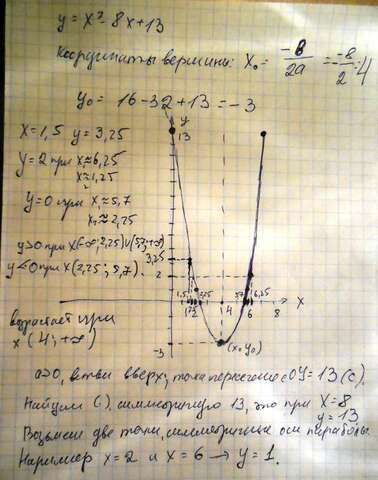 y = x² - 8x + 13
Координаты вершины: x₀ = -в/2a = -8/2 = 4
y₀ = 16 - 32 + 13 = -3
x = 1,5 y = 3,25
y = 2 при x₁ ≈ 6,25
x₂ ≈ 1,25
y = 0 при x₁ ≈ 5,7
x₂ ≈ 2,25
y > 0 при x(-∞; 2,25)∪(5,7; +∞)
y < 0 при x(2,25; 5,7).
возрастает при
x (4; +∞)
y
13
3,25
2
1,5
2,25
4
5,7
6
6,25
8
x
-3
(x₀ y₀)
a>0, ветви вверх, точка пересечение с OY = 13 (c).
Найдем (·) симметричную 13, это при x = 8
y = 13
Возьмем две точки, симметричные оси параболы.
Например x = 2 и x = 6 → y = 1.